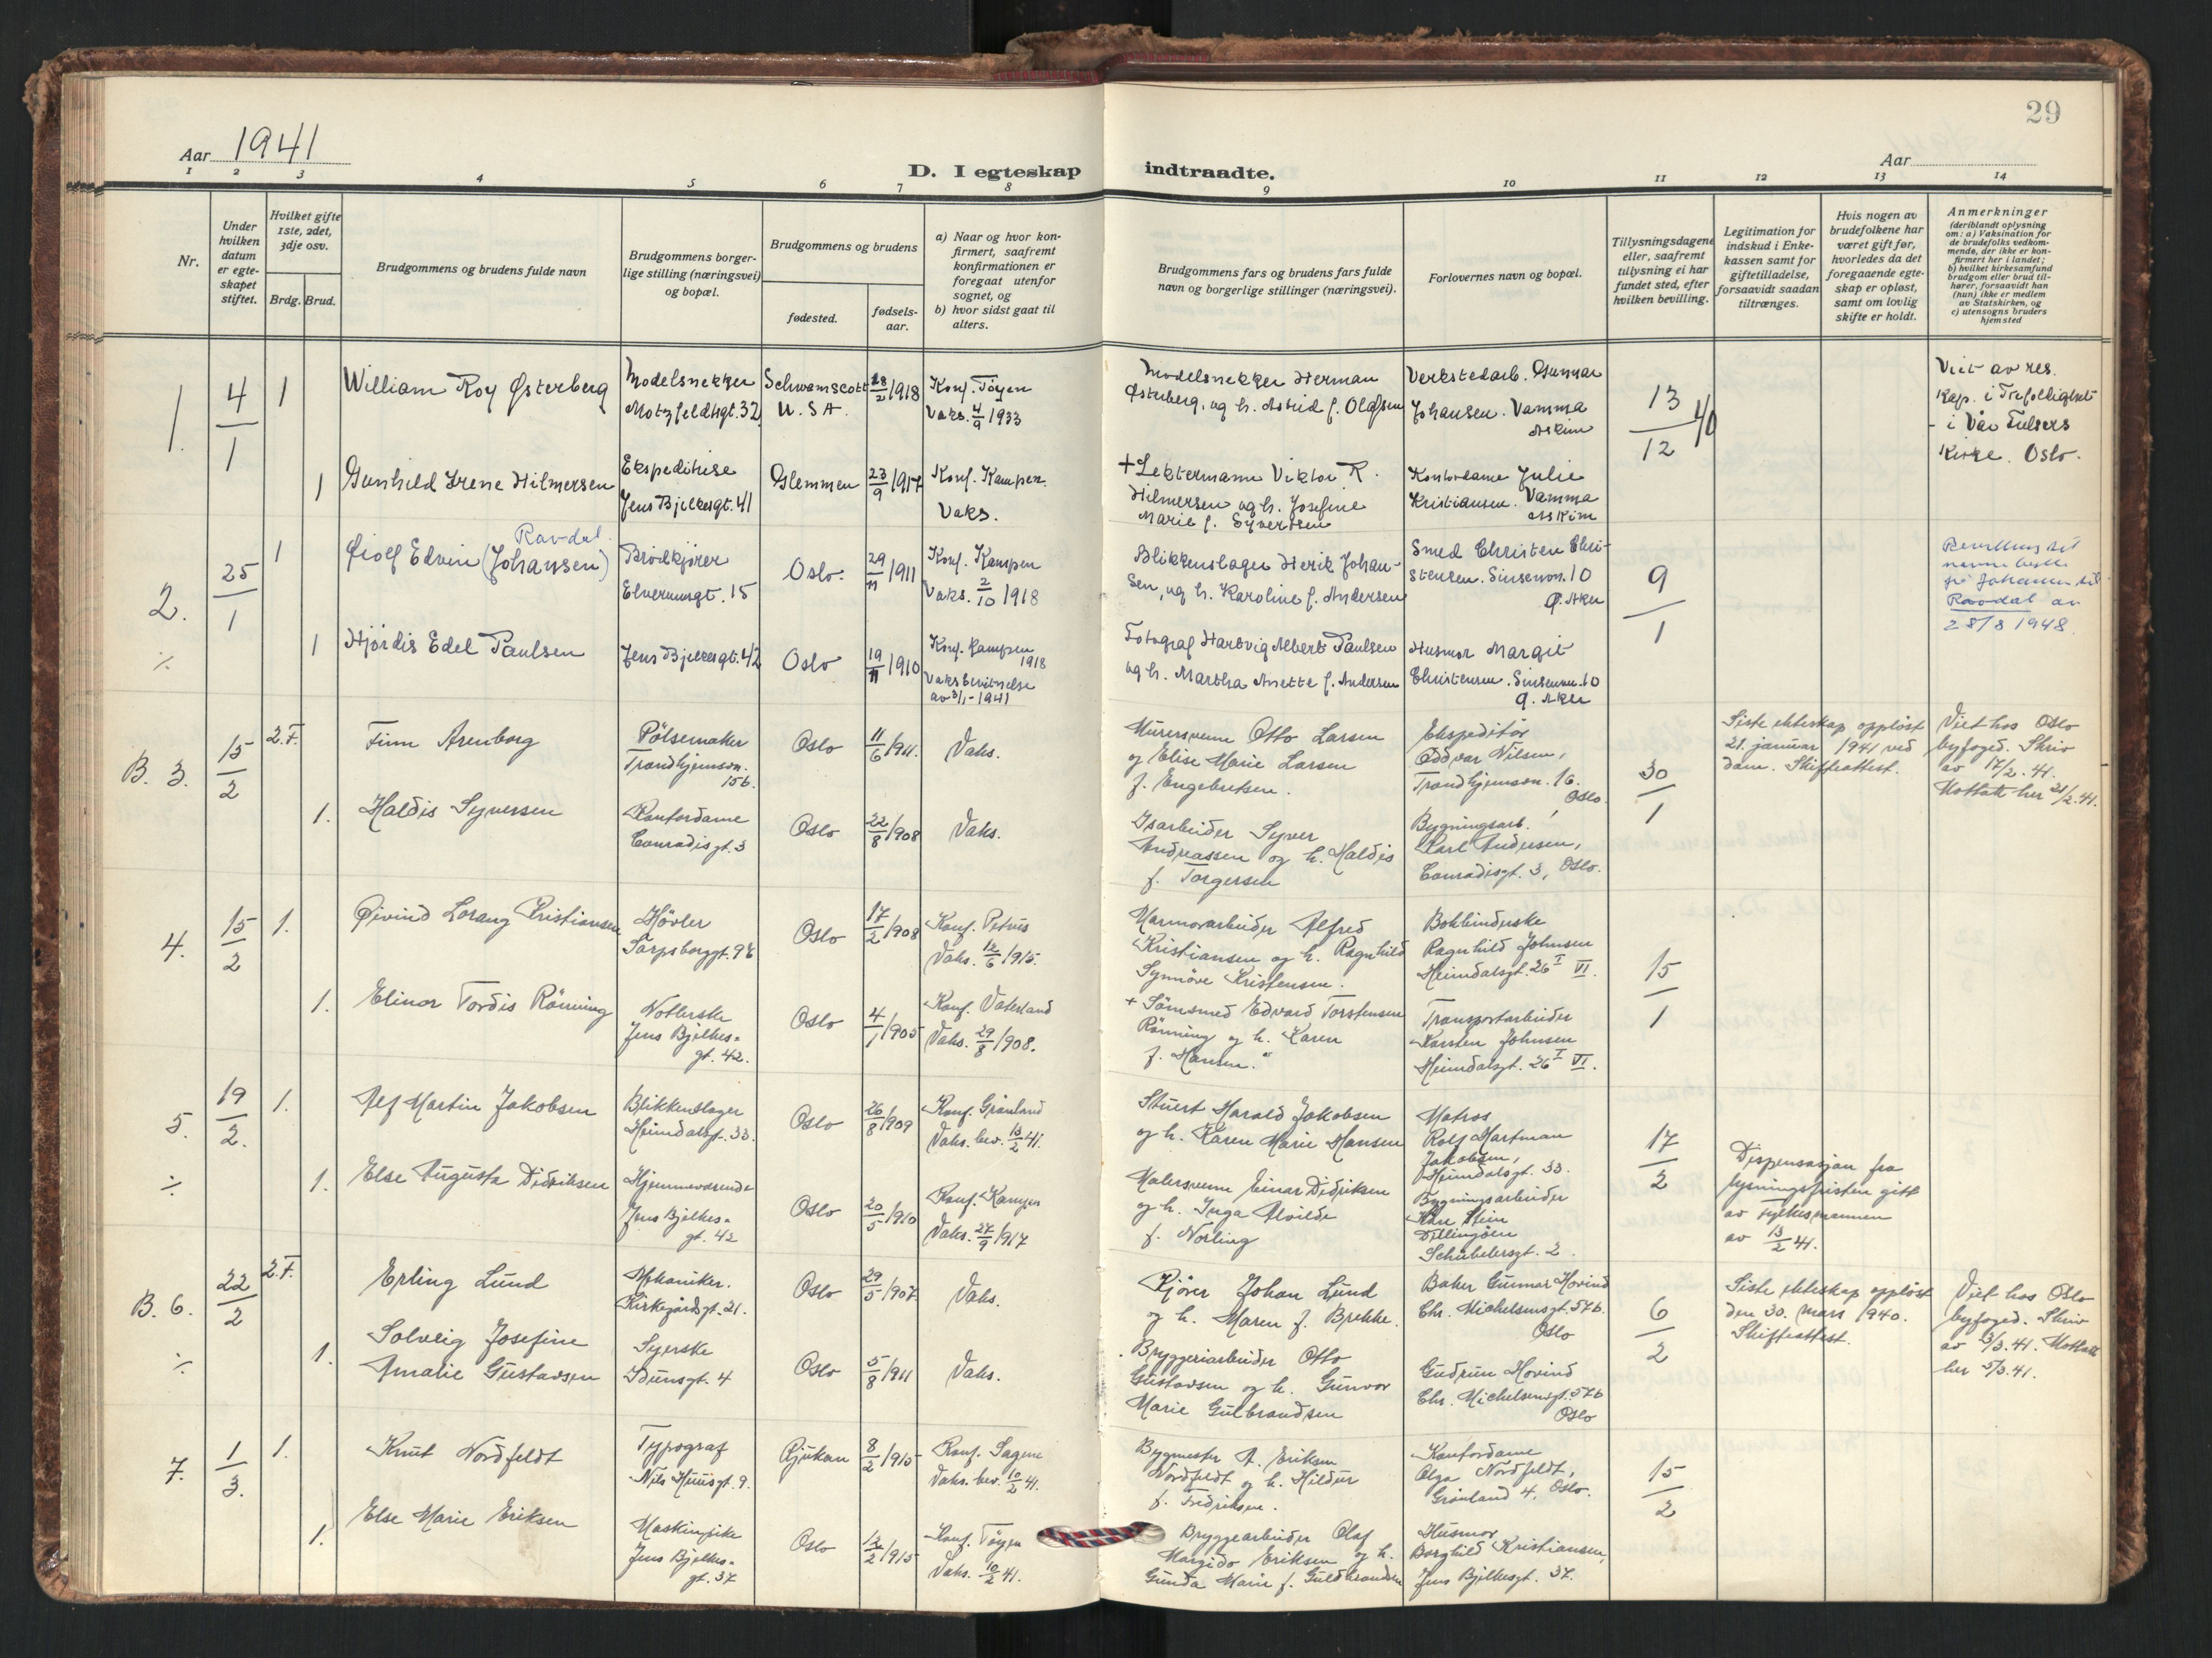 29
Aar 1941
Aar
D. I egteskap indtraadte.
1 2 3 4 5 6 7 8 9 10 11 12 13 14
Nr.
Under hvilken datum er egteskapet stiftet.
Hvilket gifte 1ste, 2det, 3dje osv.
Brdg. Brud.
Brudgommens og brudens fulde navn
Brudgommens borgerlige stilling (næringsvei) og bopæl.
Brudgommens og brudens
fødested.
fødselsaar.
a) Naar og hvor konfirmert, saafremt konfirmationen er foregaat utenfor sognet, og
b) hvor sidst gaat til alters.
Brudgommens fars og brudens fars fulde navn og borgerlige stillinger (næringsvei).
Forlovernes navn og bopæl.
Tillysningsdagene eller, saafremt tillysning ei har fundet sted, efter hvilken bevilling.
Legitimation for indskud i Enkekassen samt for giftetilladelse, forsaavidt saadan tiltrænges.
Hvis nogen av brudefolkene har været gift før, hvorledes da det foregaaende egteskap er opløst, samt om lovlig skifte er holdt.
Anmerkninger
(deriblandt oplysning om: a) Vaksination for de brudefolks vedkommende, der ikke er konfirmert her i landet;
b) hvilket kirkesamfund brudgom eller brud tilhører, forsaavidt han (hun) ikke er medlem av Statskirken, og
c) utensogns bruders hjemsted
1. 4/1 1
William Roy Østerberg
Modelsnekker
Motzfeldtsgt. 32
Schwamscott
U.S.A.
28/2 1918
Konf. Tøyen
Vaks. 4/9 1933
Modelsnekker Herman
Østerberg, og h. Astrid f. Olafsen
Verkstedarb. Gunnar
Johansen. Vamma
Askim
13/12 40
Viet av res.
kap. i Trefoldighet
- i Vår Frelsers
Kirke. Oslo.
1 Gunhild Irene Hilmersen
Ekspeditrise
Jens Bjelkesgt. 41
Glemmen
23/9 1917
Konf. Kampen.
Vaks.
+ Lektermann Viktor R.
Hilmersen og h. Josefine
Marie f. Syvertsen
Kontordame Julie
Kristiansen. Vamma
Askim
2. 25/1 1
Ravdal.
Øiolf Edvin (Johansen)
Brødkjører
Elverumsgt. 15
Oslo.
29/11 1911
Konf. Kampen
Vaks. 2/10 1918
Blikkenslager Henrik Johansen, og h. Karoline f. Andersen
Smed Christen Christensen. Sinsenvn. 10
Ø. Aker
9/1
fra Johansen til
Ravdal av
28/8 1948.
1 Hjørdis Edel Paulsen
Jens Bjelkesgt. 42
Oslo
19/11 1910
Konf. Kampen
1918
Vaksbevitnelse
av 3/1-1941
Fotograf Hartvig Albert Paulsen
og h. Martha Anette f. Andersen
Husmor Margit
Christensen. Sinsenvn. 10
Ø. Aker
B. 3. 15/2 2.F.
Finn Arenborg
Pölsemaker
Trondhjemsvn.
15b.
Oslo
11/6 1911.
Vaks.
Murersvenn Otto Larsen
og Elise Marie Larsen
f. Engebretsen.
Ekspeditör
Oddvar Nilsen,
Trondhjemsvn. 16.
Oslo.
30/1
Siste ekteskap opplöst
21. januar 1941 ved
dom. Skifteattest.
Viet hos Oslo
byfoged. Skriv
av 17/2. 41.
Mottatt her 21/2. 41.
1. Haldis Syversen
Kontordame
Conradisgt. 3
Oslo
22/8 1908
Vaks.
Isarbeider Syver
Andreassen og h. Haldis
f. Torgersen
Bygningsarb.
Karl Andersen,
Conradisgt. 3, Oslo.
4. 15/2 1.
Øivind Lorang Kristiansen
Hövler
Sarpsborggt. 9b
Oslo
17/2 1908
Konf. Petrus
Vaks. 12/6 1915.
Marmorarbeider Alfred
Kristiansen og h. Ragnhild
Synnöve Kristensen.
Bokbinderske
Ragnhild Johnsen
Heimdalsgt. 26 I VI.
15/1
1. Elinor Tordis Rönning
Notlerske
Jens Bjelkes-
gt. 42.
Oslo
4/1 1905
Konf. Vaterland
Vaks. 29/8 1908.
+ Sömsmed Edvard Torstensen
Rönning og h. Karen
f. Hansen.
Transportarbeider
Karsten Johnsen
Heimdalsgt. 26 I VI.
5. 19/2. 1.
Alf Martin Jakobsen
Blikkenslager
Heimdalsgt. 33.
Oslo
26/8 1909
Konf. Grönland
Vaks. bev. 13/2 41.
Stuert Harald Jakobsen
og h. Karen Marie Hansen
Matros
Rolf Hartman
Jakobsen,
Heimdalsgt. 33.
17/2
Dispensasjon fra
lysningsfristen gitt
av fylkesmannen
av 13/2 41.
1. Else Augusta Didriksen
Hjemmeværende
Jens Bjelkes-
gt. 42
Oslo
20/5 1910
Konf. Kampen
Vaks. 27/9 1917
Malersvenn Einar Didriksen
og h. Inga Alvilde
f. Norling
Bygningsarbeider
Kåre Stein
Dillingöen
Schübelersgt. 2.
B. 6. 22/2 2.F.
Erling Lund
Mekaniker.
Kirkegårdsgt. 21.
Oslo
29/5 1907
Vaks.
Kjörer Johan Lund
og h. Maren f. Brekke.
Baker Gunnar Hovind
Chr. Michelsensgt. 57b.
Oslo
6/2
Siste ekteskap opplöst
den 30. mars 1940.
Skifteattest.
Viet hos Oslo
byfoged. Skriv
av 3/3. 41. Mottatt
her 5/3. 41.
1. Solveig Josefine
Amalie Gustavsen
Syerske
Idunsgt. 4
Oslo
5/8 1911
Vaks.
Bryggeriarbeider Otto
Gustavsen og h. Gunvor
Marie Gulbrandsen
Gudrun Hovind
Chr. Michelsensgt. 57b
Oslo
7. 1/3. 1.
Knut Nordfeldt
Typograf
Nils Huusgt. 9.
Rjukan
8/2 1915
Konf. Sagene
Vaks. bev. 10/2 41.
Bygmester A. Eriksen
Nordfeldt og h. Hildur
f. Fredriksen.
Kontordame
Olga Nordfeldt,
Grönland 4, Oslo.
15/2
1. Else Marie Eriksen
Maskinsike
Jens Bjelkes-
gt. 37
Oslo
12/2 1915
Konf. Tøyen
Vaks. 10/2 41.
Bryggearbeider Olaf
Margido Eriksen og h.
Gunda Marie f. Guldbrandsen
Husmor
Borghild Kristiansen,
Jens Bjelkesgt. 37.